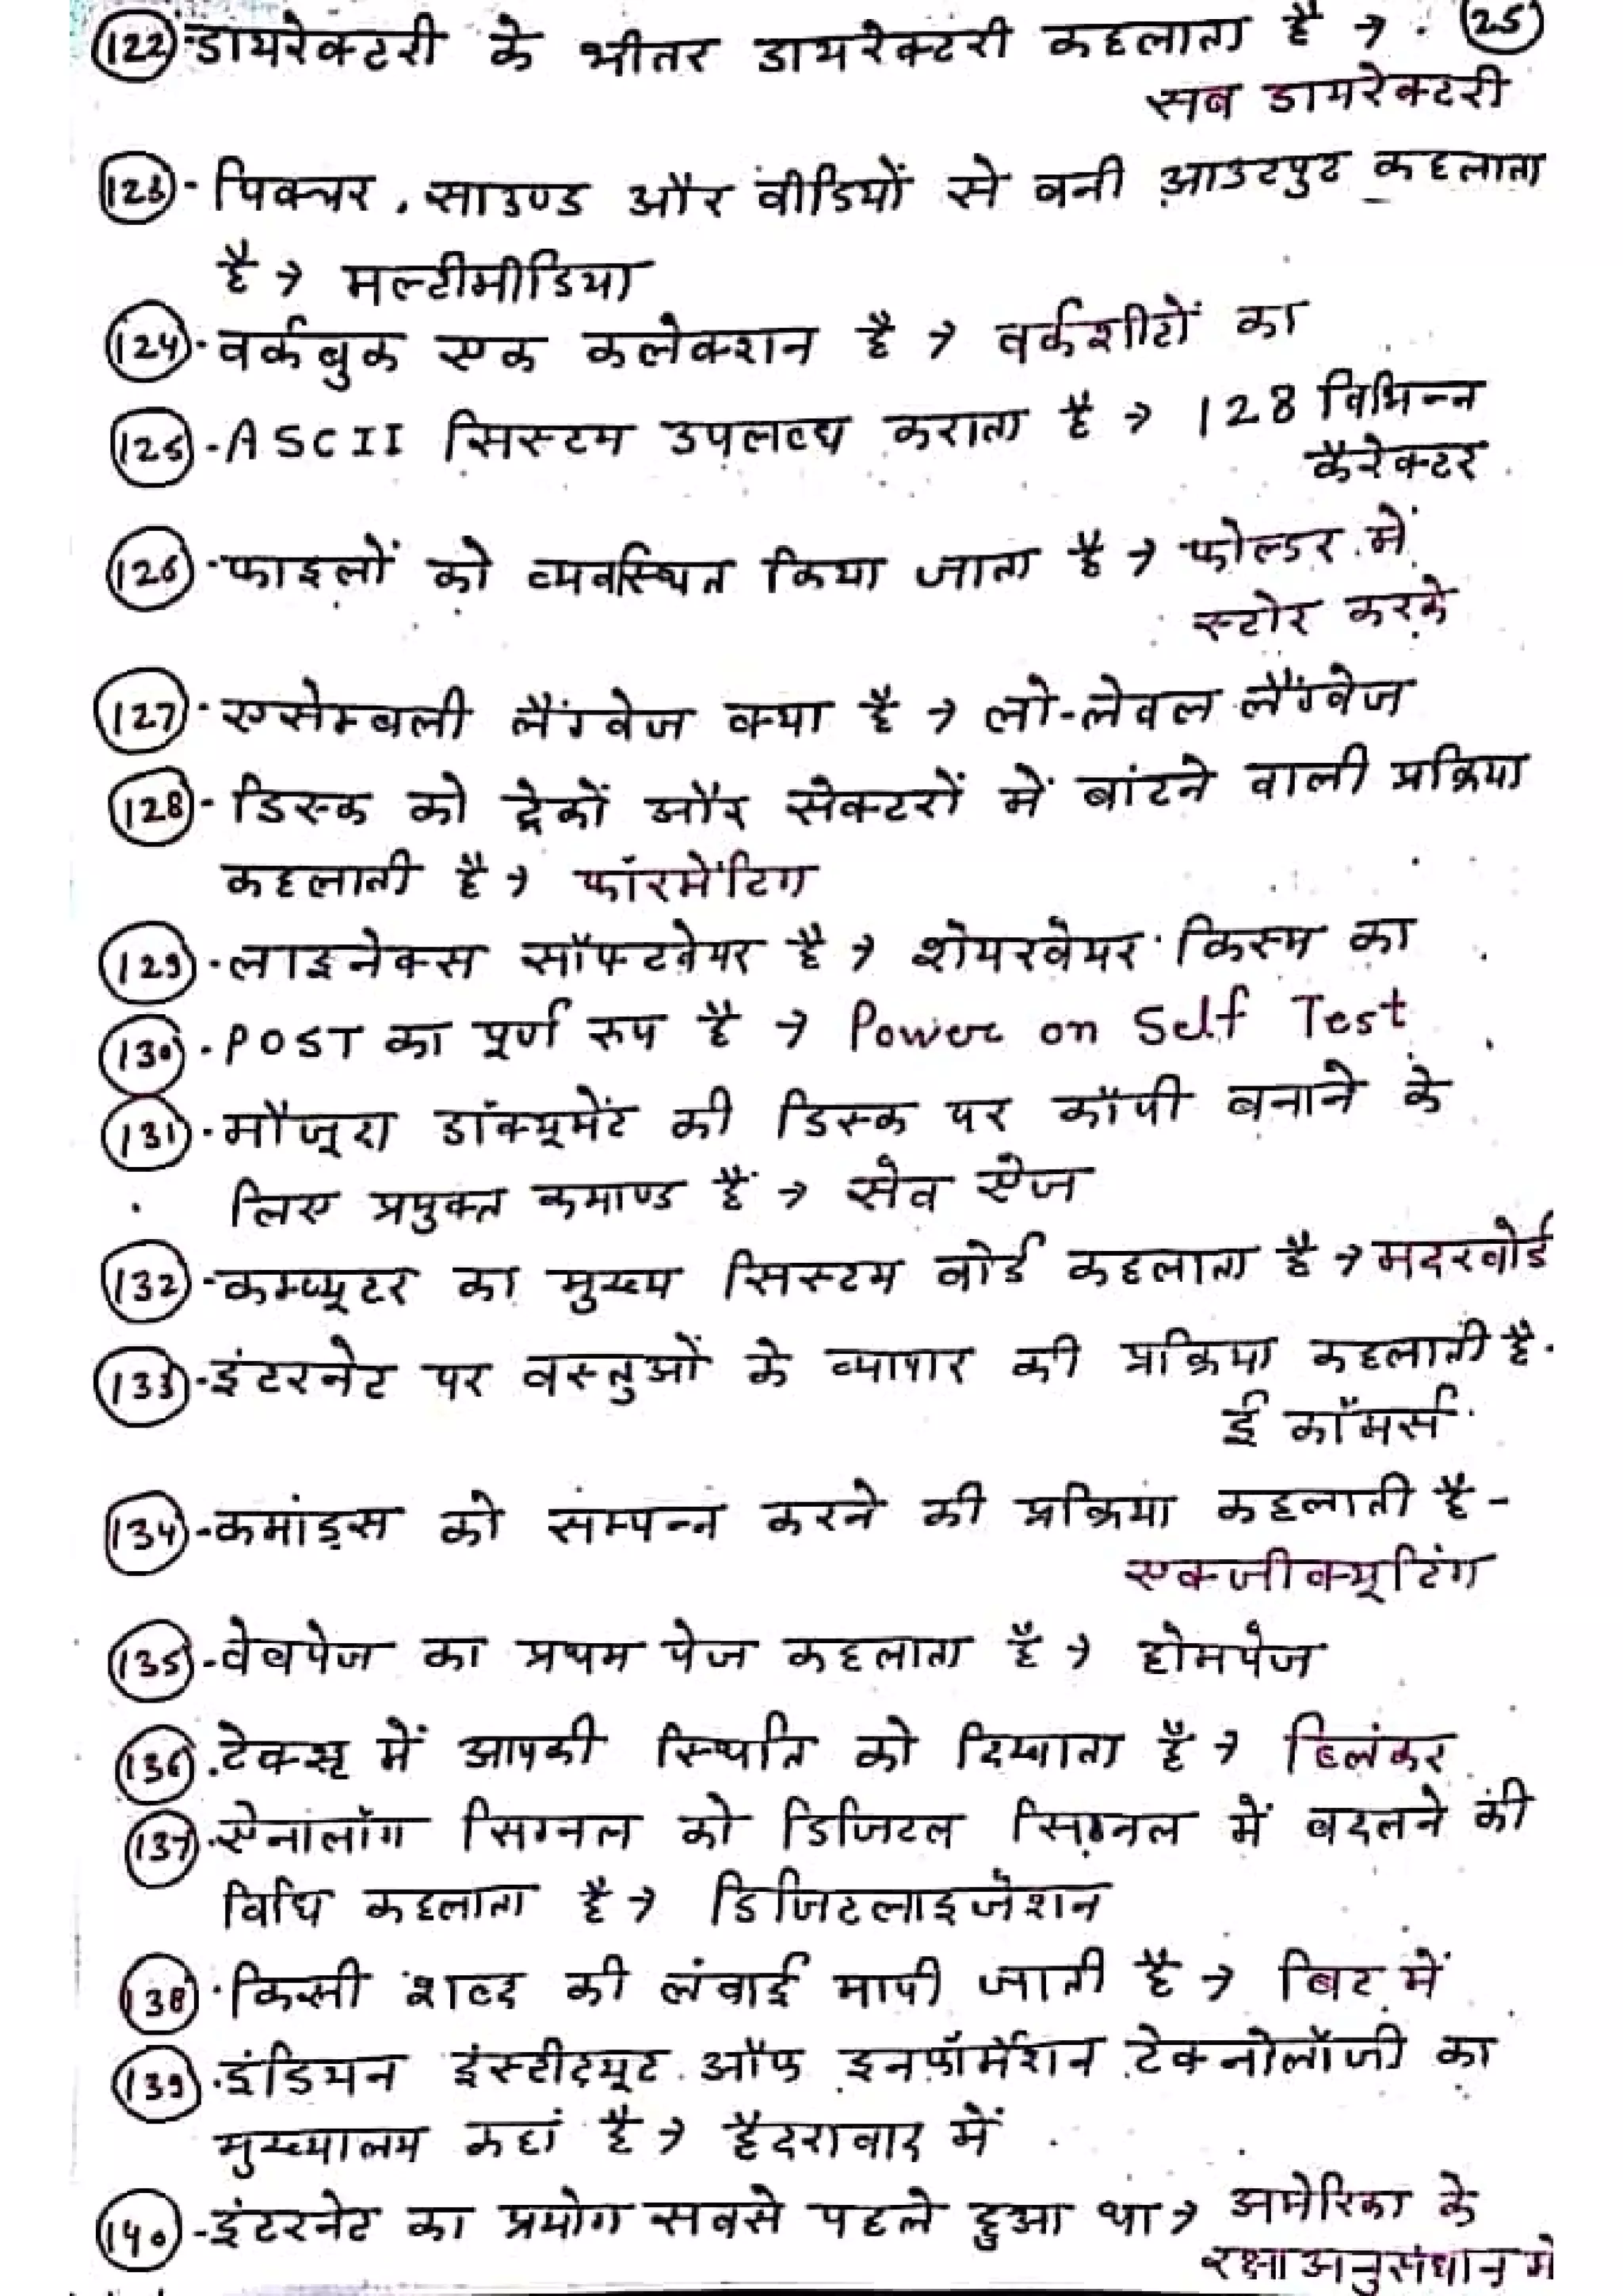 (122) डायरेक्टरी के भीतर डायरेक्टरी कहलाता है → (25)
सब डायरेक्टरी
(123)- पिक्चर, साउण्ड और वीडियों से बनी आउटपुट कहलाता
है → मल्टीमीडिया
(124)- वर्कबुक एक कलेक्शन है → वर्कशीटों का
(125)- ASCII सिस्टम उपलब्ध कराता है → 128 विभिन्न
कैरेक्टर
(126)- फाइलों को व्यवस्थित किया जाता है → फोल्डर में
स्टोर करके
(127)- एसेम्बली लैंग्वेज क्या है → लो-लेवल लैंग्वेज
(128)- डिस्क को ट्रेकों और सेक्टरों में बांटने वाली प्रक्रिया
कहलाती है → फॉरमेंटिग
(129)- लाइनेक्स सॉफ्टवेयर है → शेयरवेयर किस्म का
(130)- POST का पूर्ण रूप है → Power on Self Test
(131)- मौजूदा डॉक्यूमेंट की डिस्क पर कॉपी बनाने के
लिए प्रयुक्त कमाण्ड हैं → सेव ऐज
(132)- कम्प्यूटर का मुख्य सिस्टम बोर्ड कहलाता है → मदरबोर्ड
(133)- इंटरनेट पर वस्तुओं के व्यापार की प्रक्रिया कहलाती है-
ई कॉमर्स
(134)- कमांड्स को संम्पन्न करने की प्रक्रिया कहलाती है -
एक्जीक्यूटिंग
(135)- वेबपेज का प्रथम पेज कहलाता है → होमपेज
(136). में आपकी स्थिति को दिखाता है →
(137). ऐनालॉग सिग्नल को डिजिटल सिग्नल में बदलने की
विधि कहलाता है → डिजिटलाइजेशन
(138)- किसी शब्द की लंबाई मापी जाती है → बिट में
(139). इंडियन इंस्टीट्यूट ऑफ इनफॉर्मेशन टेक्नोलॉजी का
मुख्यालय कहां है → हैदराबाद में
(140)- इंटरनेट का प्रयोग सबसे पहले हुआ था → अमेरिका के
रक्षा अनुसंधान में